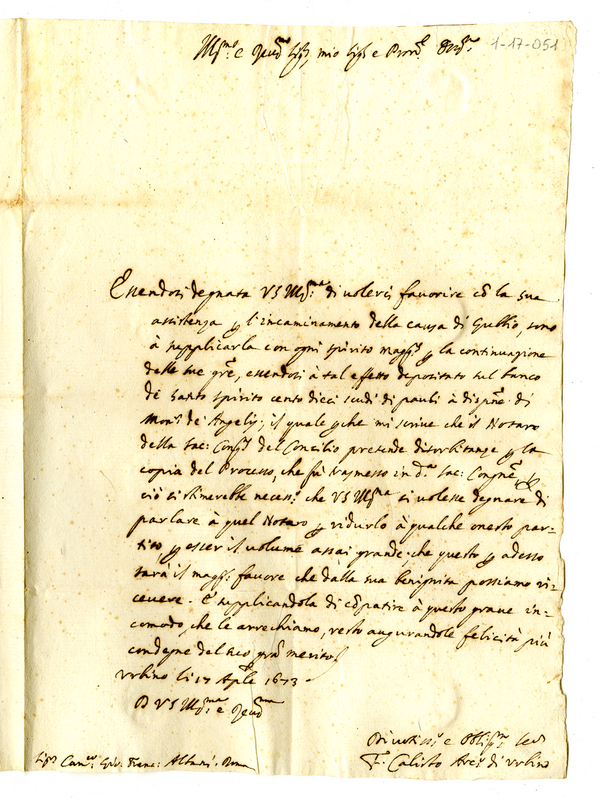 Ill.mo e Rev.mo Sig.r, mio Sig.r e Pron.e Oss.mo
1-17-051
Essendosi degnata VS Ill.ma di volerci favorire cõ la sua
assistenza p l'incaminamento della causa di Gubbio, sono
à supplicarla con ogni spirito magg.re p la continuazione
delle sue grẽ, essendosi à tal effetto depositato sul banco
di santo spirito cento dieci scudi di paoli à dispne di
Mons.r de Angelis; il quale p che mi scrive che il Notaro
della Sac: Cong.e del Concilio pretende p la
copia del Processo, che fù trasmesso in d.a Sac: Congne, p
ciò si stimerebbe necess.o che VS Ill.ma si volesse degnare di
parlare à quel Notaro p ridurlo à qualche onesto par=
tito p esser il volume assai grande, che questo p adesso
sarà il magg.r favore che dalla sua benignità possiamo ri=
cevere. E supplicandola di cõpatire à questo grave in=
comodo, che le arrechiamo, resto augurandole felicità più
condegne del suo grã merito.
Urbino li 17 Aple 1673.
D VS Ill.ma e Rev.ma
Divotiss.o e Oblig.mo
F. Calisto Arc.o di Urbino
Sig.r Can.co Gio: Franc: Albani. Roma